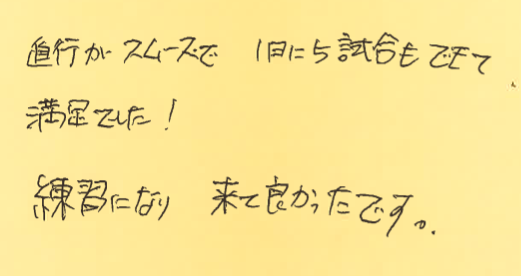 直行がスムーズで 1日に5試合もできて
満足でした!
練習になり 来て良かったです。